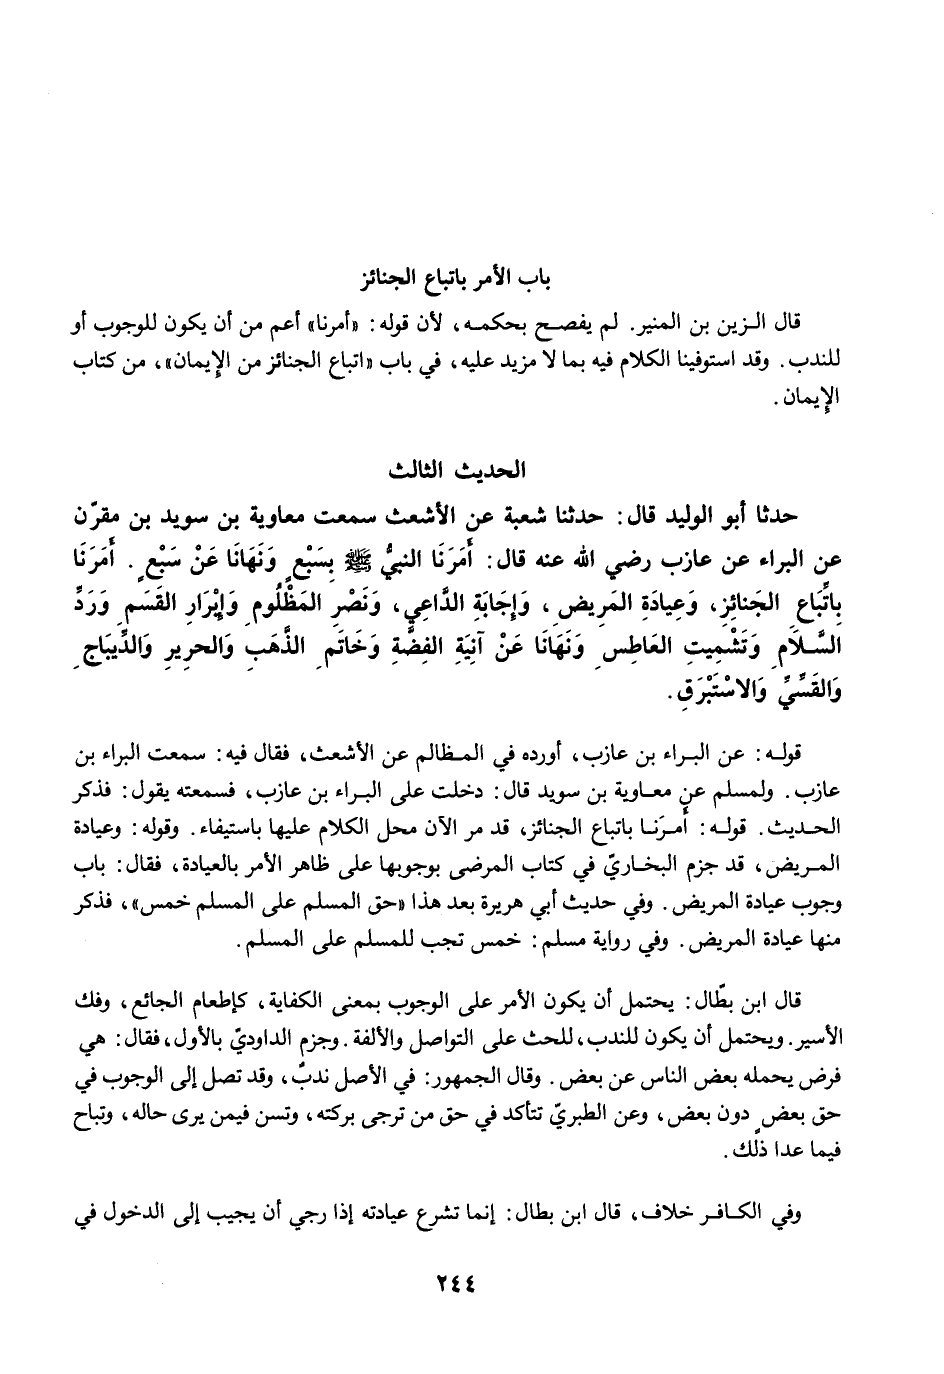 باب الأمر باتباع الجنائز
قال الـزين بن المنير. لم يفصـح بحكمـه، لأن قوله: «أمرنا» أعم من أن يكون للوجوب أو
للندب. وقد استوفينا الكلام فيه بما لا مزيد عليه، في باب «اتباع الجنائز من الإيمان»، من كتاب
الإيمان.
الحديث الثالث
حدثا أبو الوليد قال: حدثنا شعبة عن الأشعث سمعت معاوية بن سويد بن مقرّن
عن البراء عن عازب رضي الله عنه قال: أَمَرَنَا النبيُّ ﷺ بِسَبْعٍ وَنَهَانَا عَنْ سَبْعٍ. أَمَرَنَا
بِاتِّبَاعِ الجَنائِزِ، وَعِيادَةِ المَرِيضِ، وَإِجَابَةِ الدَّاعِي، وَنَصْرِ المَظْلُومِ وَإِبْرَارِ القَسَمِ وَرَدِّ
السَّـلَامِ وَتَشْمِيتِ العَاطِسِ وَنَهَانَا عَنْ آنِيَةِ الفِضَّةِ وَخَاتَمِ الذَّهَبِ وَالحريرِ وَالدِّيباجِ
وَالقَسِّيِّ وَالاسْتَبْرَقِ.
قولـه: عن البـراء بن عازب، أورده في المـظالم عن الأشعث، فقال فيه: سمعت البراء بن
عازب. ولمسلم عن معـاوية بن سويد قال: دخلت على البـراء بن عازب، فسمعته يقول: فذكر
الحـديث. قولـه: أمـرَنـا باتباع الجنائز، قد مر الآن محل الكلام عليها باستيفاء. وقوله: وعيادة
المـريض، قد جزم البخاريّ في كتاب المرضى بوجوبها على ظاهر الأمر بالعيادة، فقال: باب
وجوب عيادة المريض. وفي حديث أبي هريرة بعد هذا «حق المسلم على المسلم خمس»، فذكر
منها عيادة المريض. وفي رواية مسلم: خمس تجب للمسلم على المسلم.
قال ابن بطّال: يحتمل أن يكون الأمر على الوجوب بمعنى الكفاية، كإطعام الجائع، وفك
الأسير. ويحتمل أن يكون للندب، للحث على التواصل والألفة. وجزم الداوديّ بالأول، فقال: هي
فرض يحمله بعض الناس عن بعض. وقال الجمهور: في الأصل ندبٌ، وقد تصل إلى الوجوب في
حق بعضٍ دون بعض، وعن الطبريّ تتأكد في حق من ترجى بركته، وتسن فيمن يرى حاله، وتباح
فيما عدا ذلك.
وفي الكـافـر خلاف، قال ابن بطال: إنما تشرع عيادته إذا رجي أن يجيب إلى الدخول في
٢٤٤